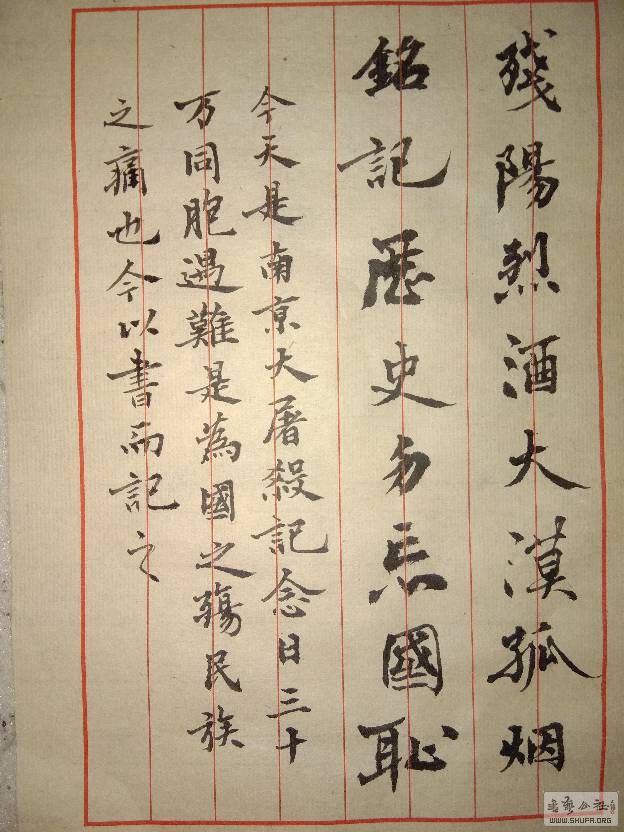 殘陽烈酒大漠孤烟
銘記歷史勿忘國恥
今天是南京大屠殺記念日三十
万同胞遇難是為國之殤民族
之痛也今以書而記之
WWW.SHUFA.ORG